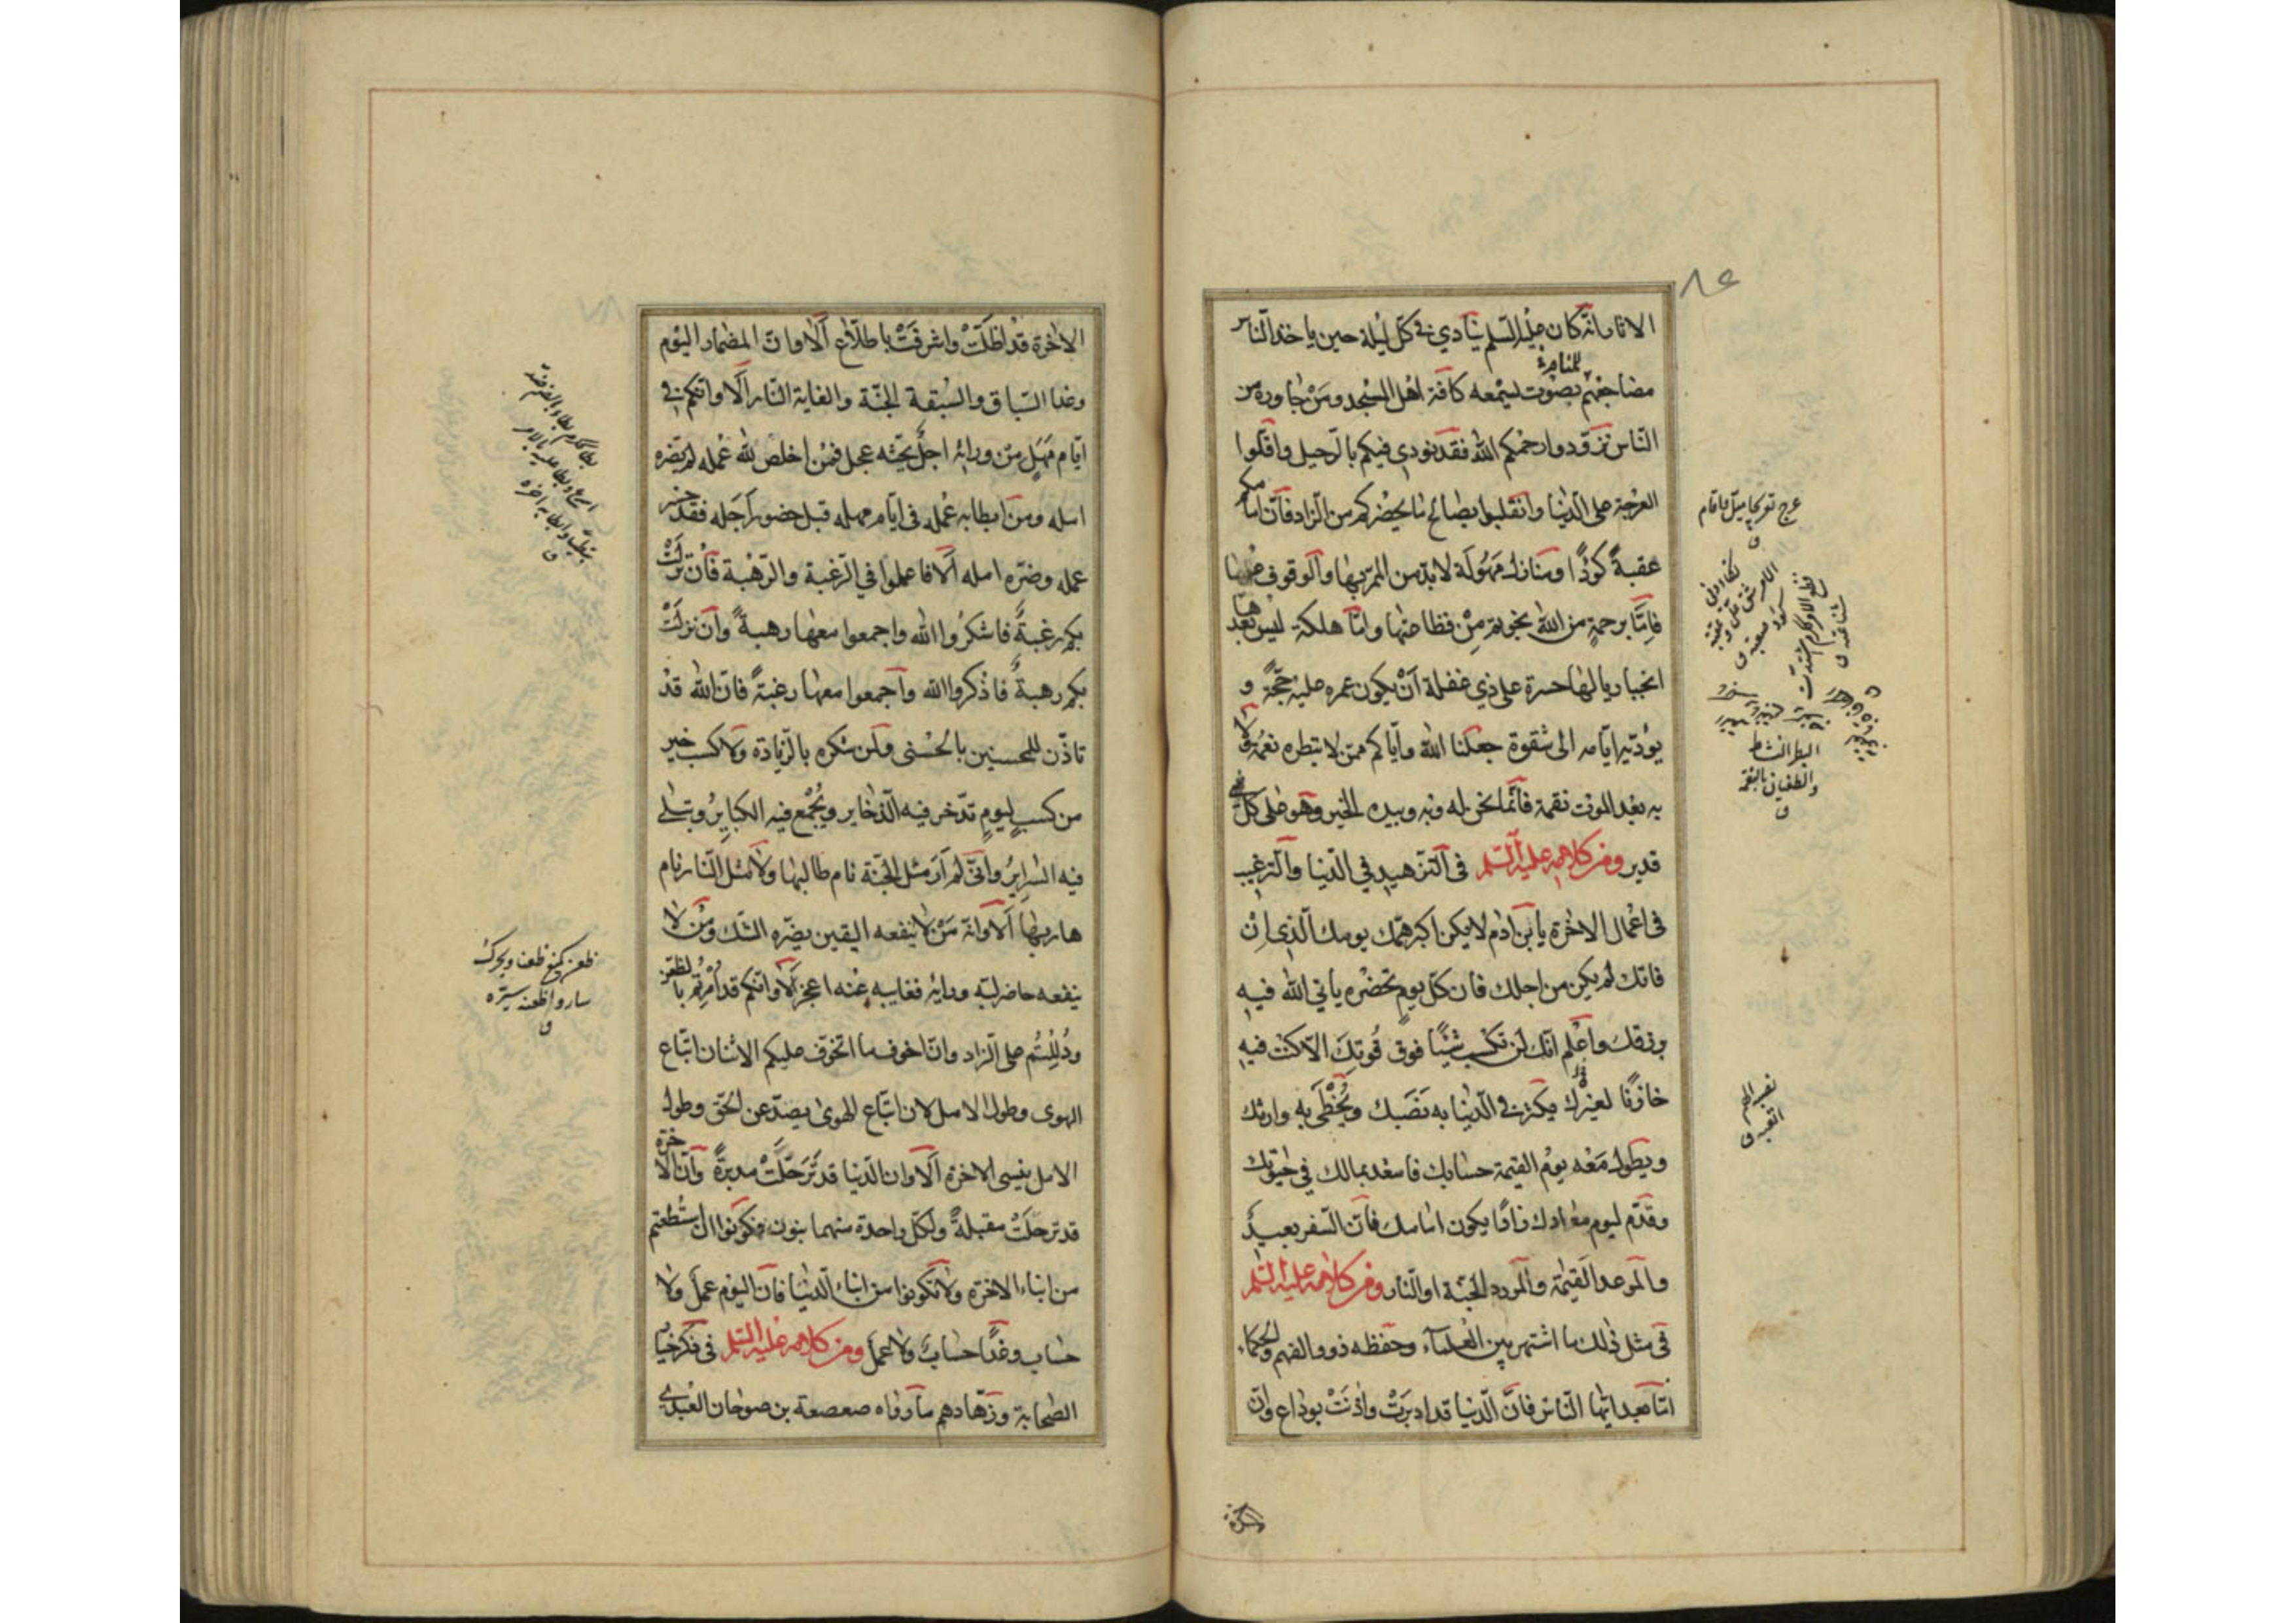 ٨٤
الاثار انه كان عليه السلم ينادي في كل ليلة حين ياخذ الناس
للمنام
مضاجعهم بصوت ليسمعه كافة اهل المسجد ومن جاوره من
الناس تزودوا رحمكم الله فقد نودي فيكم بالرحيل واقلوا
العرجة على الدنيا وانقلبوا بصالح ما يحضركم من الزاد فان امامكم
عقبة كؤدا ومنازل مهولة لا بد من الممر بها والوقوف عليها
فاما برحمة من الله نجوتم من فظاعتها واما هلكة ليس بعدها
انجبار يا لها حسرة على ذي غفلة ان يكون عمره عليه حجة و
يؤديه ايامه الى شقوة جعلنا الله واياكم ممن لا تبطره نعمة ولا
به بعد الموت نقمة فانما نحن له وبه وبيده الخير وهو على كل شئ
قدير ومن كلامه عليه السلم في التزهيد في الدنيا والترغيب
في اعمال الاخرة يا بن ادم لا يكن اكبر همك يومك الذي ان
فاتك لم يكن من اجلك فان كل يوم تحضره ياتي الله فيه
برزقك واعلم انك لن تكسب شيئا فوق قوتك الا كنت فيه
خازنا لغيرك يكثر في الدنيا به نصبك ويحظى به وارثك
ويطول معه يوم القيمة حسابك فاسعد بمالك في حيوتك
وقدم ليوم معادك زادا يكون امامك فان السفر بعيد
والموعد القيمة والمورد الجنة او النار ومن كلامه عليه السلم
في مثل ذلك ما اشتهر بين العلماء وحفظه ذوو الفهم والحكماء
اما بعد ايها الناس فان الدنيا قد ادبرت واذنت بوداع وان
الاخرة
عرج تعريجا ميل واقام
ق
البطر النشاط
والطغيان بالنعمة
ق
نصب الهم
اتعبه ق
الاخرة قد اظلت واشرفت باطلاع الا وان المضمار اليوم
وغدا السباق والسبقة الجنة والغاية النار الا وانكم في
ايام مهل من ورائه اجل يحثه عجل فمن اخلص لله عمله لم يضره
امله ومن ابطا به عمله في ايام مهله قبل حضور اجله فقد خسر
عمله وضره امله الا فاعملوا في الرغبة والرهبة فان نزلت
بكم رغبة فاشكروا الله واجمعوا معها رهبة وان نزلت
بكم رهبة فاذكروا الله واجمعوا معها رغبة فان الله قد
تاذن للمحسنين بالحسنى ولمن شكره بالزيادة ولا كسب خير
من كسب ليوم تدخر فيه الذخاير ويجمع فيه الكباير وتبلى
فيه السراير واني لم ار مثل الجنة نام طالبها ولا مثل النار نام
هاربها الا وانه من لا ينفعه اليقين يضره الشك ومن لا
ينفعه حاضر لبه ورايه فغايبه عنه اعجز الا وانكم قد امرتم بالظعن
ودللتم على الزاد وان اخوف ما اتخوف عليكم الاثنان اتباع
الهوى وطول الامل لان اتباع الهوى يصد عن الحق وطول
الامل ينسي الاخرة الا وان الدنيا قد ترحلت مدبرة وان الاخرة
قد ترحلت مقبلة ولكل واحدة منهما بنون فكونوا ان استطعتم
من ابناء الاخرة ولا تكونوا من ابناء الدنيا فان اليوم عمل ولا
حساب وغدا حساب ولا عمل ومن كلامه عليه السلم في ذكر خيار
الصحابة وزهادهم ما رواه صعصعة بن صوحان العبدي
ظعن كمنع ظعنا ويحرك
سار واظعنه سيره
ق